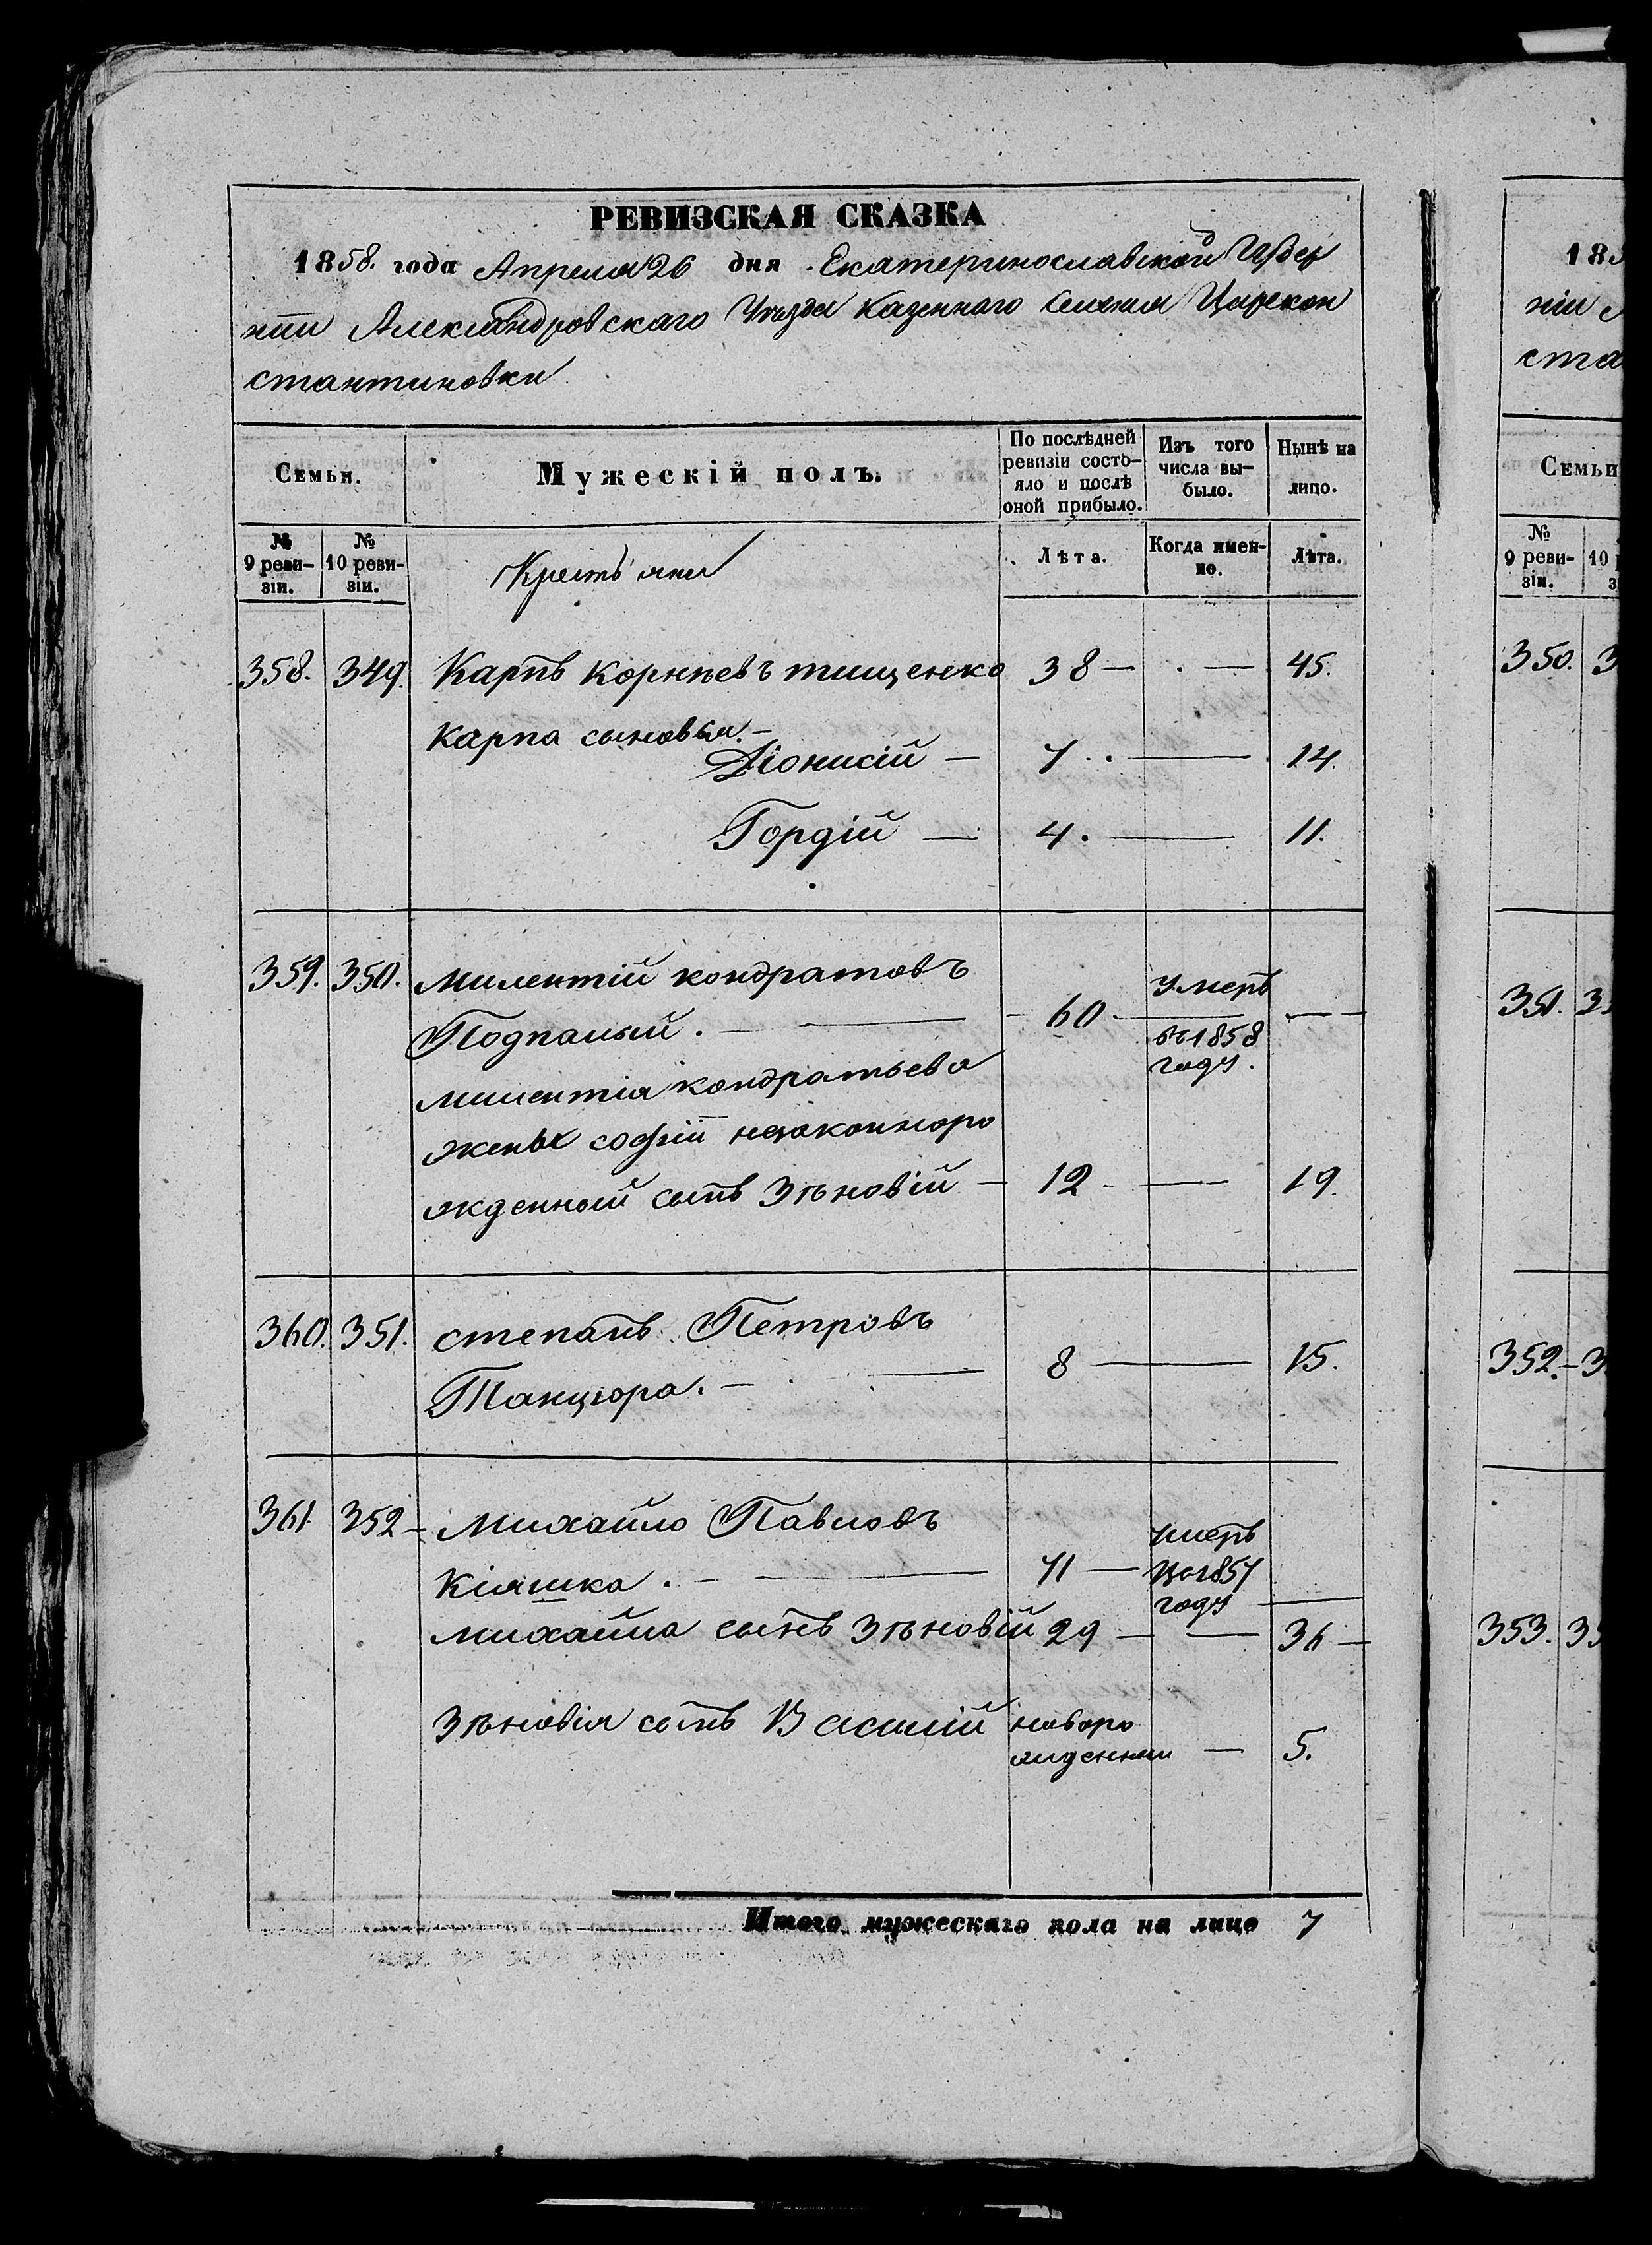 РЕВИЗСКАЯ СКАЗКА
1858. года Апреля 26 дня Екатеринославской Губер
нiи Александровскаго Уезда Казенного Селения Царекон
стантиновки
Семьи. Мужескiй полъ. По послѣдней ревизiи состо- яло и послѣ оной прибыло. Изъ того числа вы- было. Нынѣ на лицо.
№ 9 реви- зiи. № 10 реви- зiи. Крестьяни Лѣта. Когда имен- но. Лѣта.
358. 349. Карпъ Корнѣевъ тищенко 38 — . — 45.
Карпа сыновья. —
Дiонисiй — 7 . . — 14.
Гордiй — 4 . — 11.
359. 350. Милентiй кондратовъ
Подпалый . — 60 Умеръ въ 1858 году. —
милентiя кондратьева
жены софiи незаконноро
жденный сынъ Зѣновiй — 12 — 19.
360. 351. степанъ Петровъ
Танцюра . — 8 — 15.
361. 352 — Михайло Павловъ
Кiяшка . — 71 — умеръ въ 1857 году —
михайла сынъ Зѣновiй 29 — — 36 —
Зѣновiя сынъ Василiй новоро жденный — 5.
Итого мужескаго пола на лице 7
185
нiи
ста
Семьи
№ 9 реви- зiи. 10
350. 3
351. 3
352. — 3
353. 35